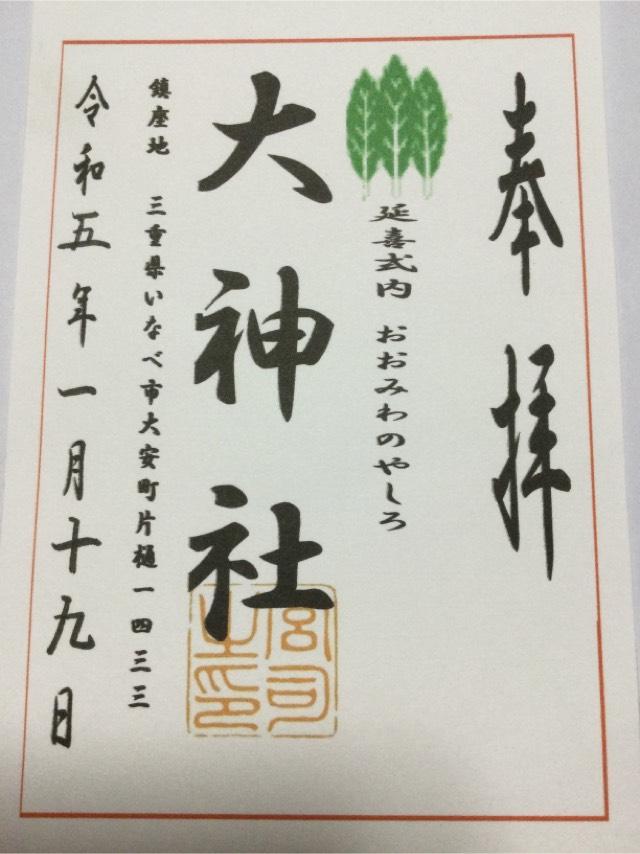 奉拝
延喜式内 おおみわのやしろ
大神社
宮司之印
鎮座地 三重県いなべ市大安町片樋一四三三
令和五年一月十九日